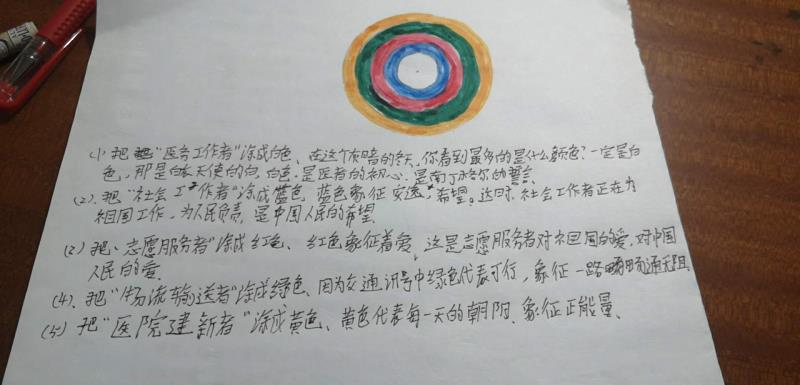 (1) 把"医务工作者"涂成白色、在这个灰暗的冬天、你看到最多的是什么颜色?一定是白
色,那是白衣天使的白.白色.是医者的初心.是南丁格尔的誓言
(2)、把"社会工作者"涂成蓝色 蓝色象征安逸、希望。这时、社会工作者正在为
祖国工作,为人民负责,是中国人民的希望.
(2) 把、志愿服务者"涂成红色、红色象征着爱、这是志愿服务者对祖国的爱,对中国
人民的爱.
(4)、把"物流输送者"涂成绿色、因为交通讯号中绿色代表可行,象征一路畅通无阻
(5) 把"医院建新者"涂成黄色、黄色代表每一天的朝阳、象征正能量、